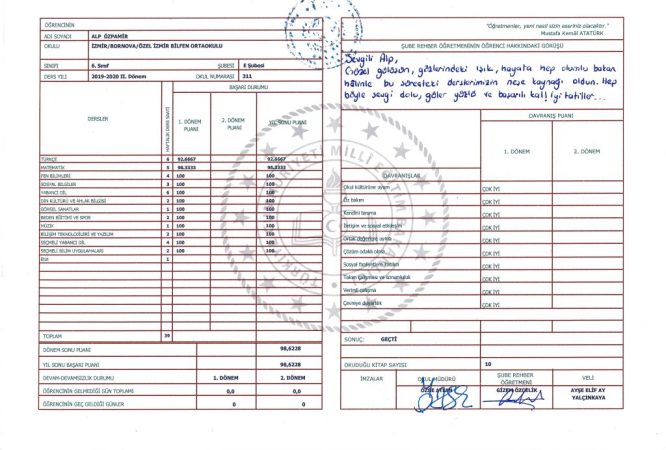 ÖĞRENCİNİN
ADI SOYADI ALP ÖZPAMİR
OKULU İZMİR/BORNOVA/ÖZEL İZMİR BİLFEN ORTAOKULU
SINIFI 6. Sınıf ŞUBESİ E Şubesi
DERS YILI 2019-2020 II. Dönem OKUL NUMARASI 311
BAŞARI DURUMU
DERSLER HAFTALIK DERS SAATİ 1. DÖNEM PUANI 2. DÖNEM PUANI YIL SONU PUANI
TÜRKÇE 6 92,6667 92,6667
MATEMATİK 5 98,3333 98,3333
FEN BİLİMLERİ 4 100 100
SOSYAL BİLGİLER 3 100 100
YABANCI DİL 6 100 100
DİN KÜLTÜRÜ VE AHLAK BİLGİSİ 2 100 100
GÖRSEL SANATLAR 1 100 100
BEDEN EĞİTİMİ VE SPOR 2 100 100
MÜZİK 1 100 100
BİLİŞİM TEKNOLOJİLERİ VE YAZILIM 2 100 100
SEÇMELİ YABANCI DİL 4 100 100
SEÇMELİ BİLİM UYGULAMALARI 2 100 100
1
TOPLAM 39
DÖNEM SONU PUANI 98,6228
YIL SONU BAŞARI PUANI 98,6228
DEVAM-DEVAMSIZLIK DURUMU 1. DÖNEM 2. DÖNEM
ÖĞRENCİNİN GELMEDİĞİ GÜN TOPLAMI 0,0 0,0
ÖĞRENCİNİN GEÇ GELDİĞİ GÜNLER 0 0
"Öğretmenler, yeni nesil sizin eseriniz olacaktır."
Mustafa Kemâl ATATÜRK
ŞUBE REHBER ÖĞRETMENİNİN ÖĞRENCİ HAKKINDAKİ GÖRÜŞÜ
Sevgili Alp,
Güzel gülüşün, gözlerindeki ışık, hayata hep olumlu bakan
halinle bu süreçteki derslerimizin neşe kaynağı oldun. Hep
böyle sevgi dolu, güler yüzlü ve başarılı kal! İyi tatiller...
DAVRANIŞ PUANI
DAVRANIŞLAR 1. DÖNEM 2. DÖNEM
Okul kültürüne uyum ÇOK İYİ
Öz bakım ÇOK İYİ
Kendini tanıma ÇOK İYİ
İletişim ve sosyal etkileşim ÇOK İYİ
Ortak değerlere uyma ÇOK İYİ
Çözüm odaklı olma ÇOK İYİ
Sosyal faaliyetlere katılım ÇOK İYİ
Takım çalışması ve sorumluluk ÇOK İYİ
Verimli çalışma ÇOK İYİ
Çevreye duyarlık ÇOK İYİ
SONUÇ: GEÇTİ
OKUDUĞU KİTAP SAYISI 10
İMZALAR OKUL MÜDÜRÜ ŞUBE REHBER ÖĞRETMENİ VELİ
GİZEM ÖZÇELİK AYŞE ELİF AY YALÇINKAYA